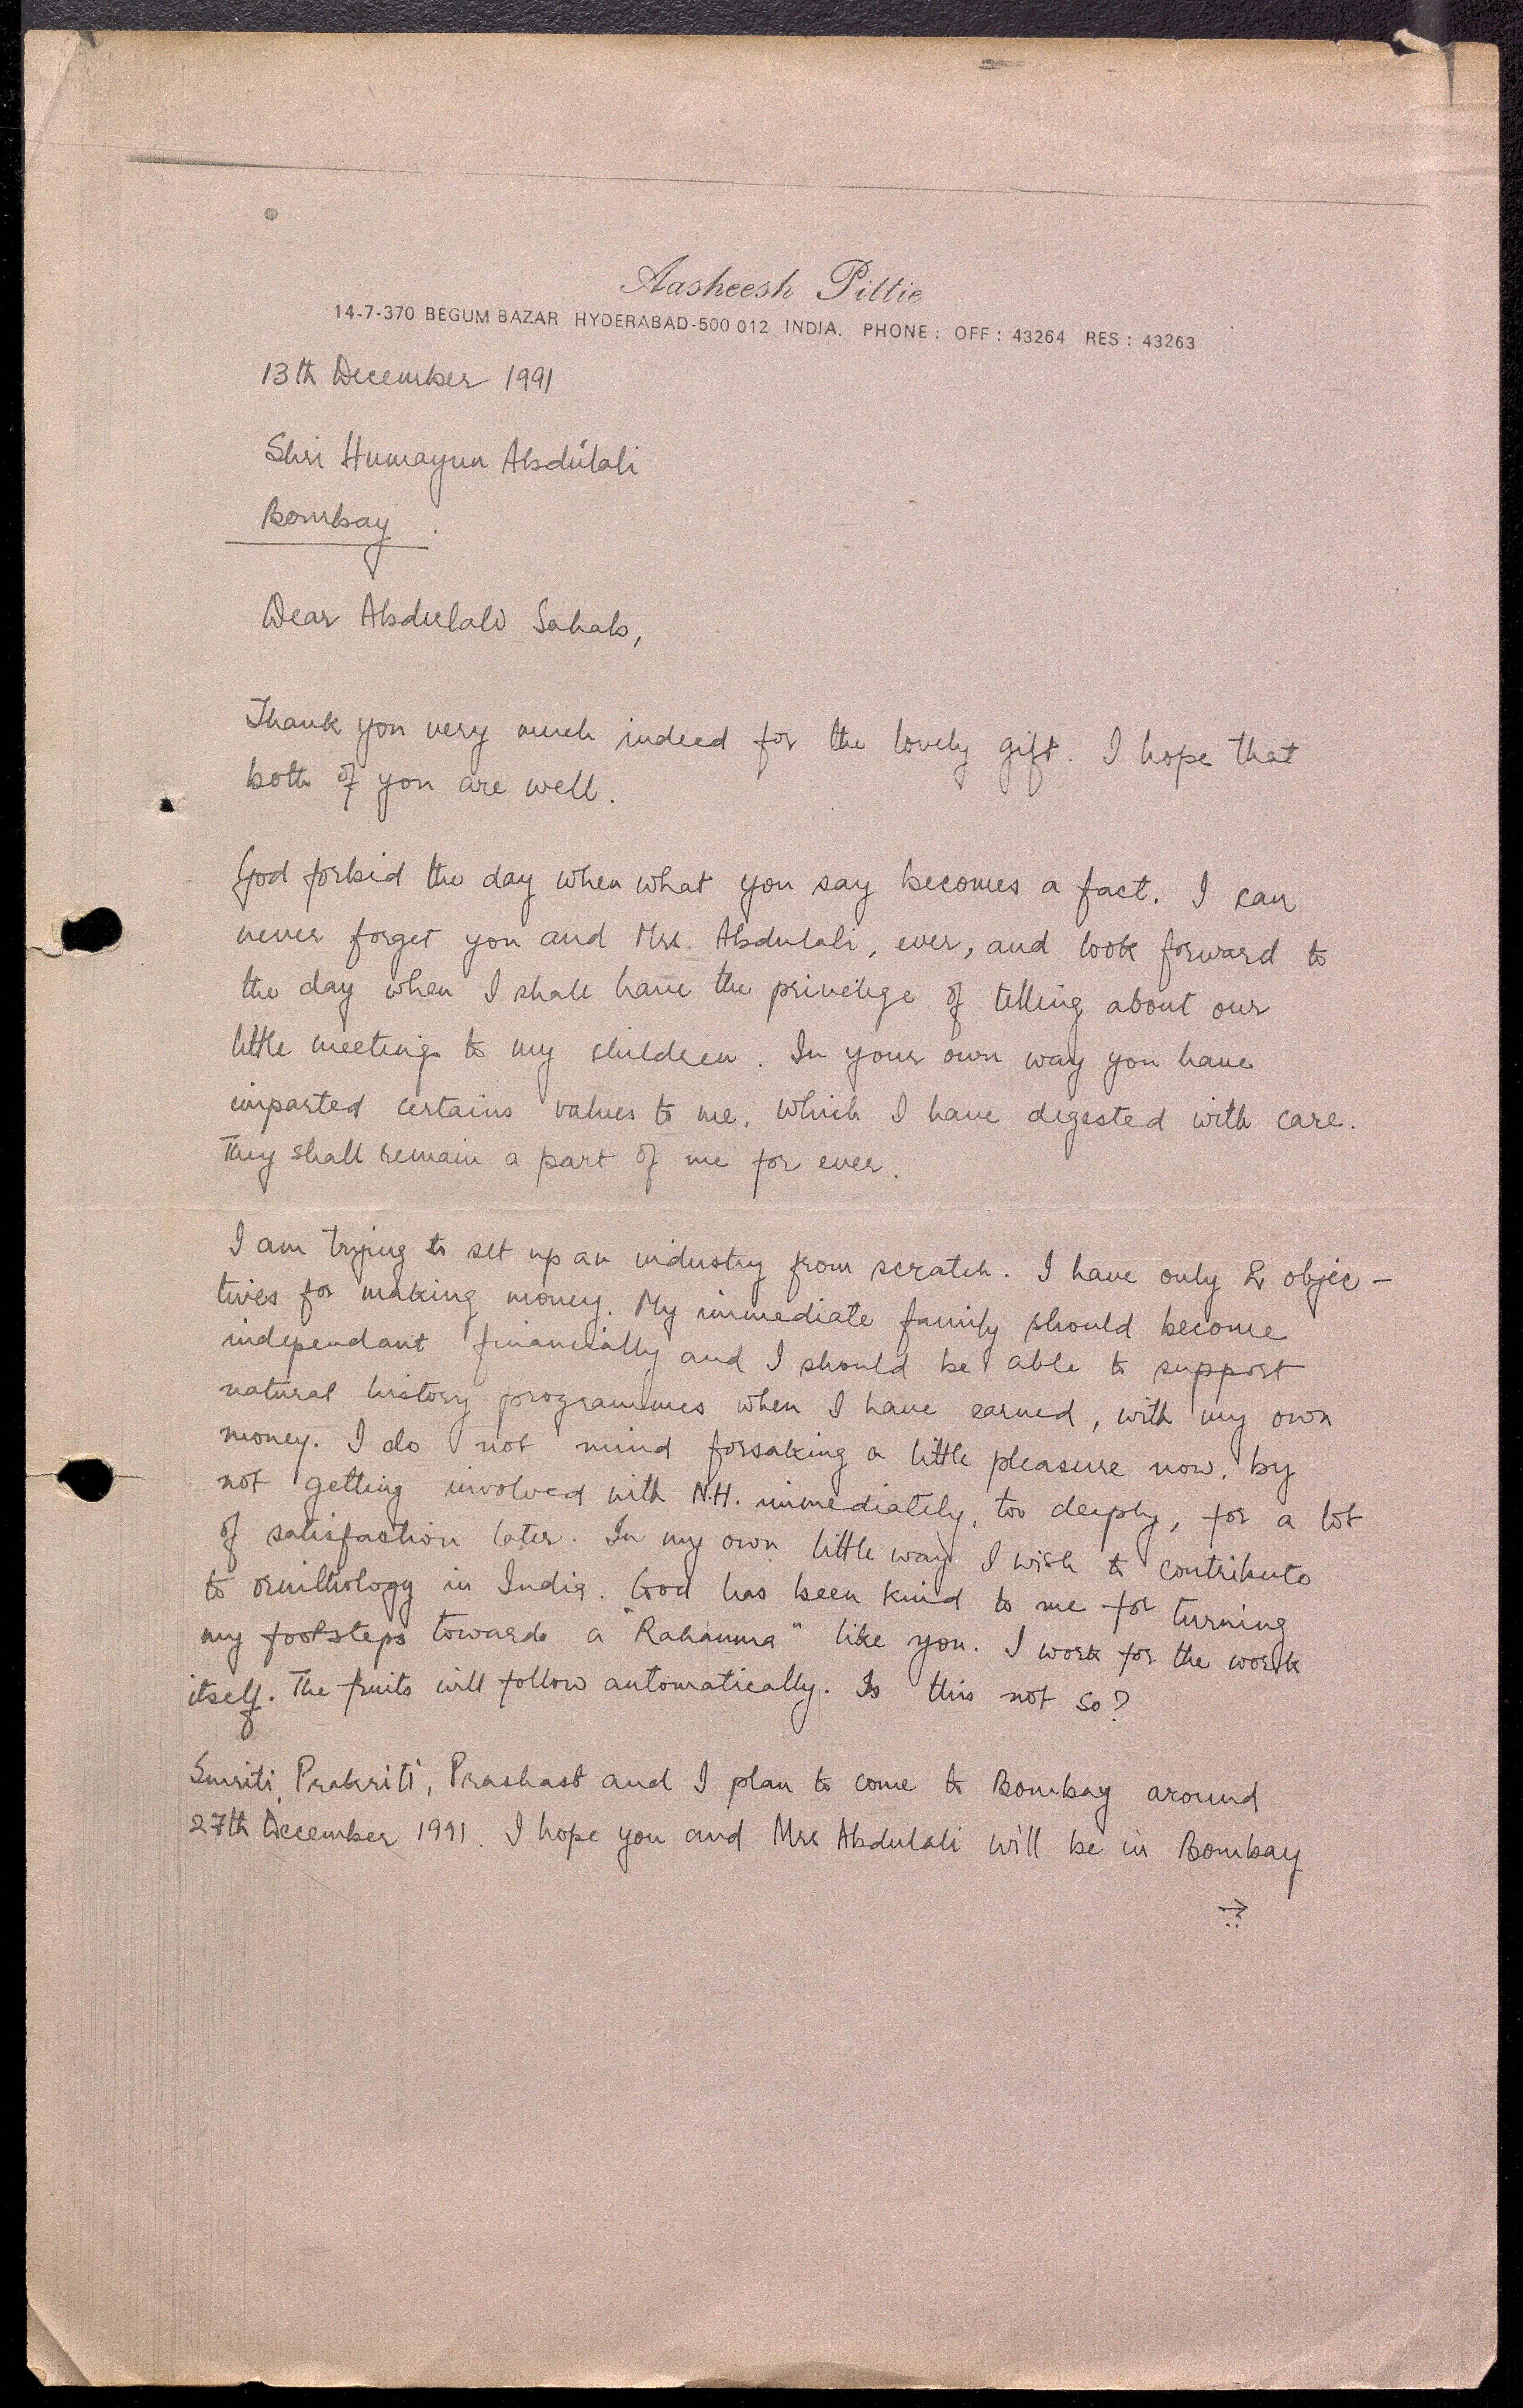 Aasheesh Pittie
14-7-370 BEGUM BAZAR HYDERABAD-500 012 INDIA. PHONE : OFF : 43264 RES : 43263
13th December 1991
Shri Humayun Abdulali
Bombay.
Dear Abdulali Sahab,
Thank you very much indeed for the lovely gift. I hope that
both of you are well.
God forbid the day when what you say becomes a fact. I can
never forget you and Mrs. Abdulali, ever, and look forward to
the day when I shall have the privelige of telling about our
little meetings to my children. In your own way you have
imparted certains values to me, which I have digested with care.
They shall remain a part of me for ever.
I am trying to set up an industry from scratch. I have only 2 objec-
tives for making money. My immediate family should become
independant financially and I should be able to support
natural history programmes when I have earned, with my own
money. I do not mind forsaking a little pleasure now, by
not getting involved with N.H. immediately, too deeply, for a lot
of satisfaction later. In my own little way I wish to contribute
to ornithology in India. God has been kind to me for turning
my footsteps towards a "Rahanuma" like you. I work for the work
itself. The fruits will follow automatically. Is this not so?
Smriti, Prakriti, Prashast and I plan to come to Bombay around
27th December 1991. I hope you and Mrs Abdulali will be in Bombay
→